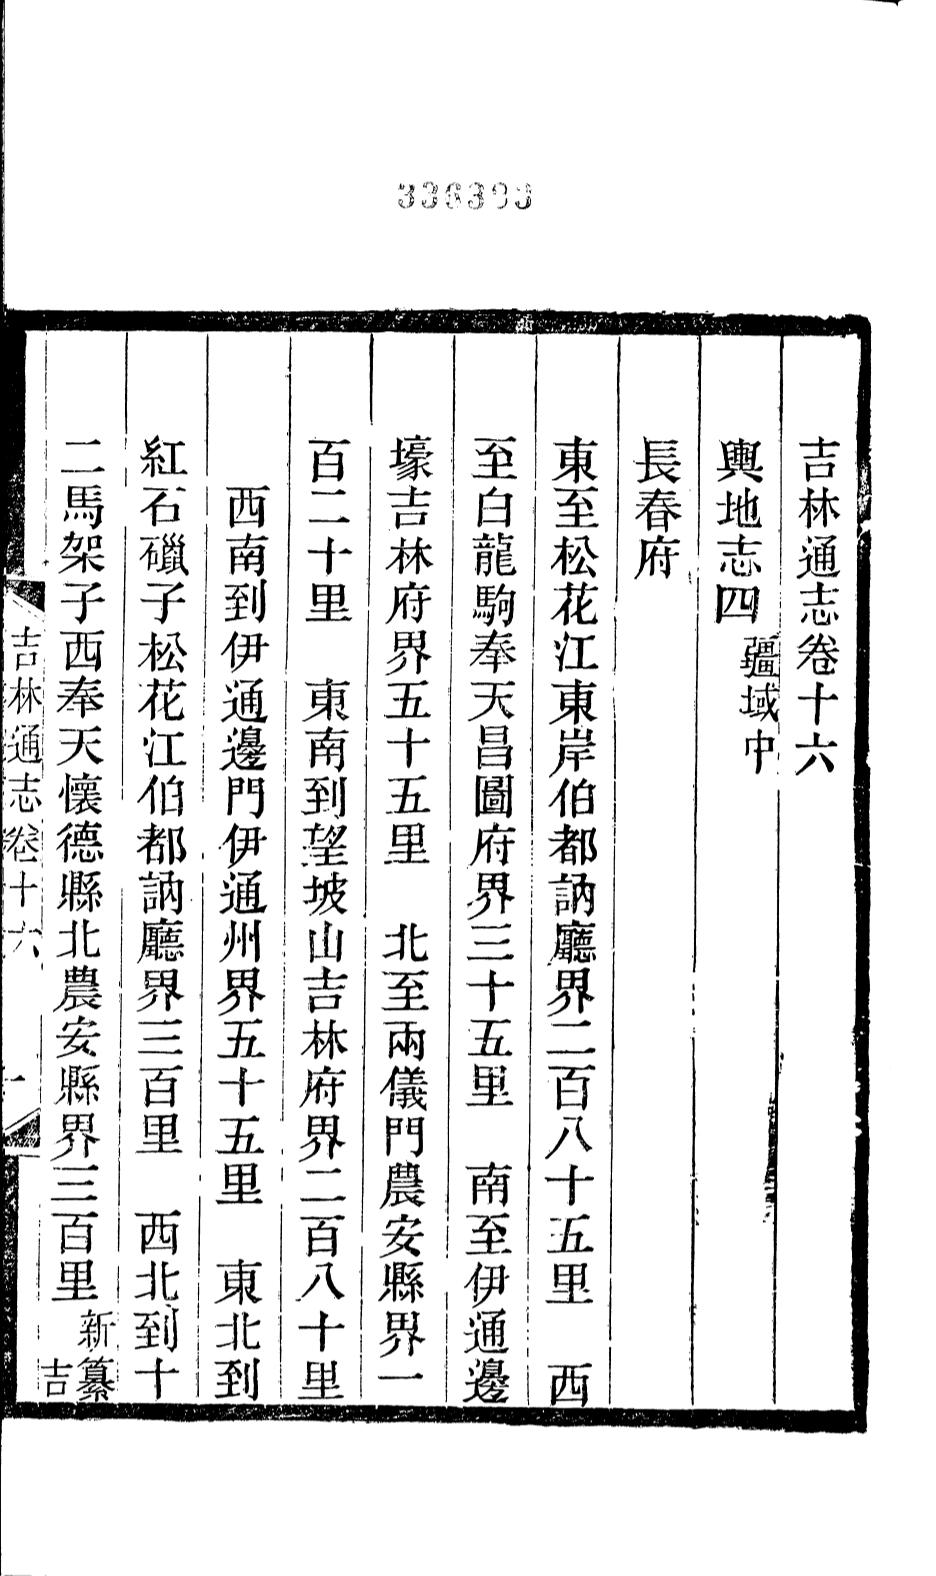 吉林通志卷十六
輿地志四 疆域中
長春府
東至松花江東岸伯都訥廳界二百八十五里 西
至白龍駒奉天昌圖府界三十五里 南至伊通邊
壕吉林府界五十五里 北至兩儀門農安縣界一
百二十里 東南到望坡山吉林府界二百八十里
西南到伊通邊門伊通州界五十五里 東北到
紅石磖子松花江伯都訥廳界三百里 西北到十
二馬架子西奉天懷德縣北農安縣界三百里 新纂 吉
吉林通志卷十六 一